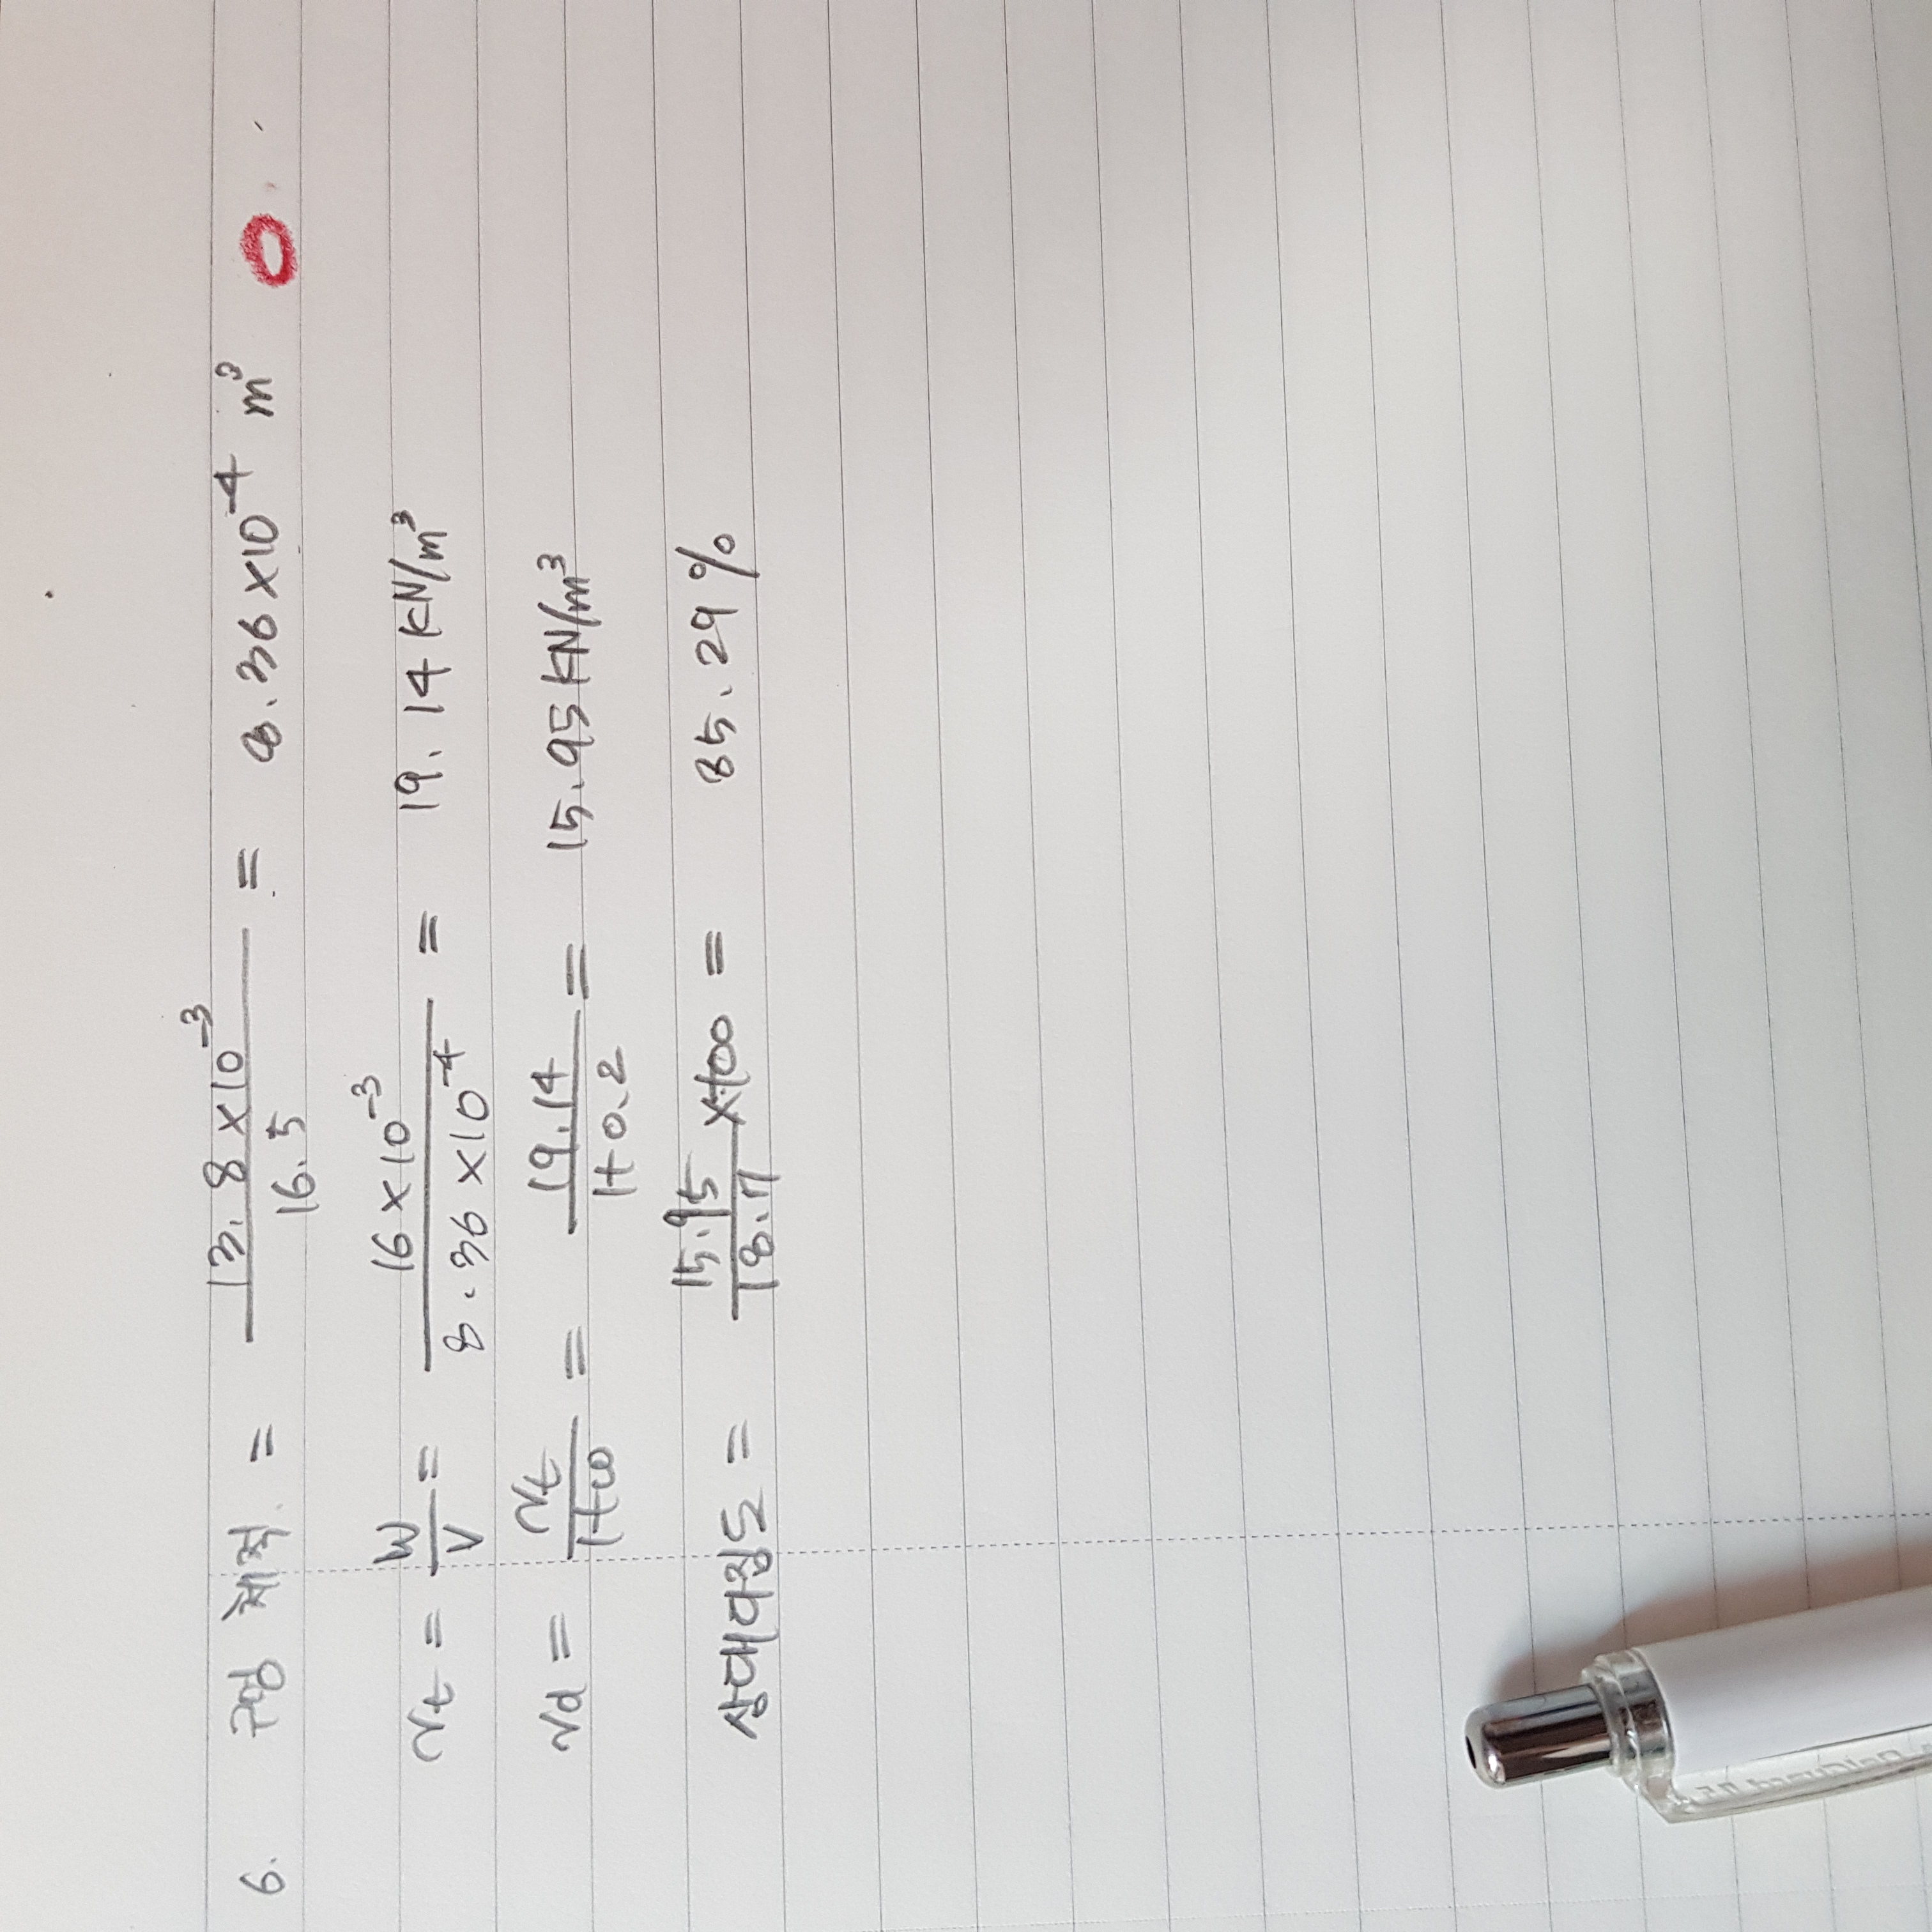 6. 구멍 체적. = 13.8×10⁻³ / 16.5 = 8.36×10⁻⁴ m³
γt = W/V = 16×10⁻³ / 8.36×10⁻⁴ = 19.14 kN/m³
γd = γt / 1+ω = 19.14 / 1+0.2 = 15.95 kN/m³
상대다짐도 = 15.95 / 18.7 ×100 = 85.29%